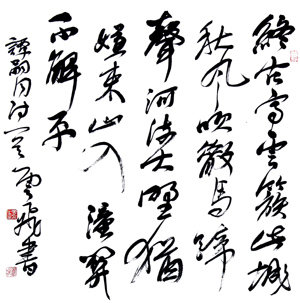 終古高雲簇此城
秋风吹散馬蹄
聲河流大野猶
嫌束山入潼関
不解平
譚嗣同詩
書